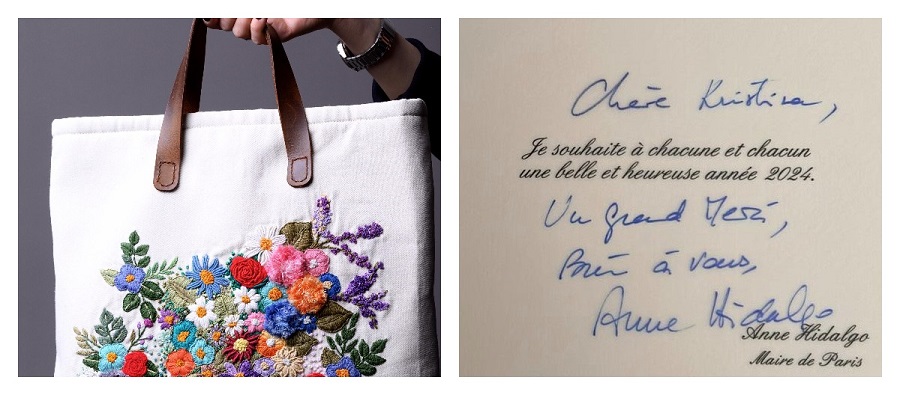 Chère Kristina,
Je souhaite à chacune et chacun
une belle et heureuse année 2024.
Un grand Merci,
Bien à vous,
Anne Hidalgo
Anne Hidalgo
Maire de Paris